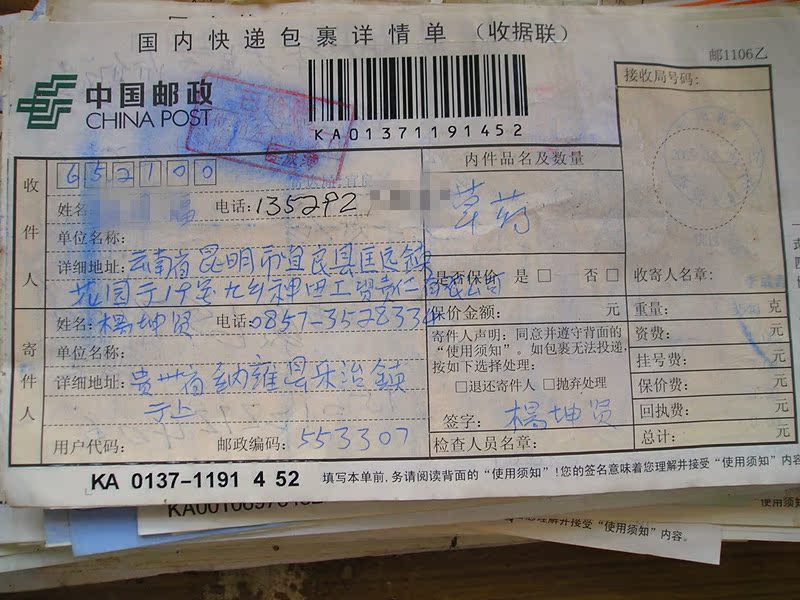 国内快递包裹详情单 (收据联)
邮1106乙
中国邮政
CHINA POST
KA01371191452
接收局号码:
收件人
652100
内件品名及数量
姓名 电话:135292
草药
单位名称:
详细地址:云南省昆明市宜良县匡远镇
是否保价 是 □ 否 □
收寄人名章:
姓名:楊坤贤 电话:0857-3528334
保价金额: 元
重量: 克
寄件人
单位名称:
寄件人声明:同意并遵守背面的
“使用须知”。如包裹无法投递,
按如下选择处理:
□退还寄件人 □抛弃处理
资费: 元
挂号费: 元
详细地址:贵州省纳雍县乐治鎮
保价费: 元
签字: 楊坤贤
回执费: 元
用户代码: 邮政编码:553307
检查人员名章:
总计: 元
KA 0137-1191 4 52
填写本单前,务请阅读背面的“使用须知”!您的签名意味着您理解并接受“使用须知”内容